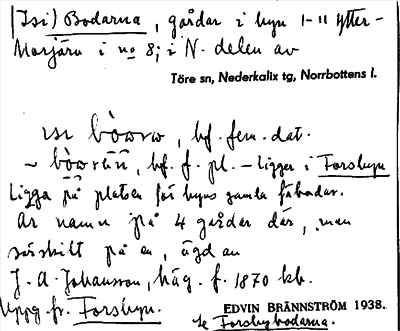 (Isi) Bodarna, gårdar i byn 1-11 Ytter-
Morjärv i no 8; i N. delen av
Töre sn, Nederkalix tg, Norrbottens l.
ɪsɪ bòɷrɷ, bf. fem. dat.
~ bòɷrɛn̄, bf. f. pl. – Ligger i Forsbyn
Ligga på platsen för byns gamla fäbodar.
Är namn på 4 gårdar där, man
särskilt på en, ägd av
J. A. Johansson, häg. f. 1870 kb.
Uppg. fr. Forsbyn.
EDVIN BRÄNNSTRÖM 1938.
se Forsbybodarna.